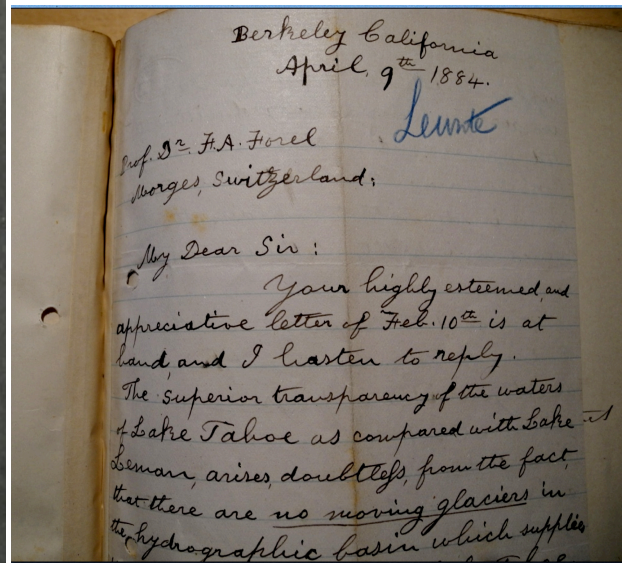 Berkeley California
April, 9th 1884.
Prof. Dr. F.A. Forel
Morges, Switzerland;
My Dear Sir :
Your highly esteemed, and
appreciative letter of Feb. 10th is at
hand, and I hasten to reply.
The superior transparency of the waters
of Lake Tahoe as compared with Lake
Leman, arises, doubtless, from the fact,
that there are no moving glaciers in
the hydrographic basin which supplies